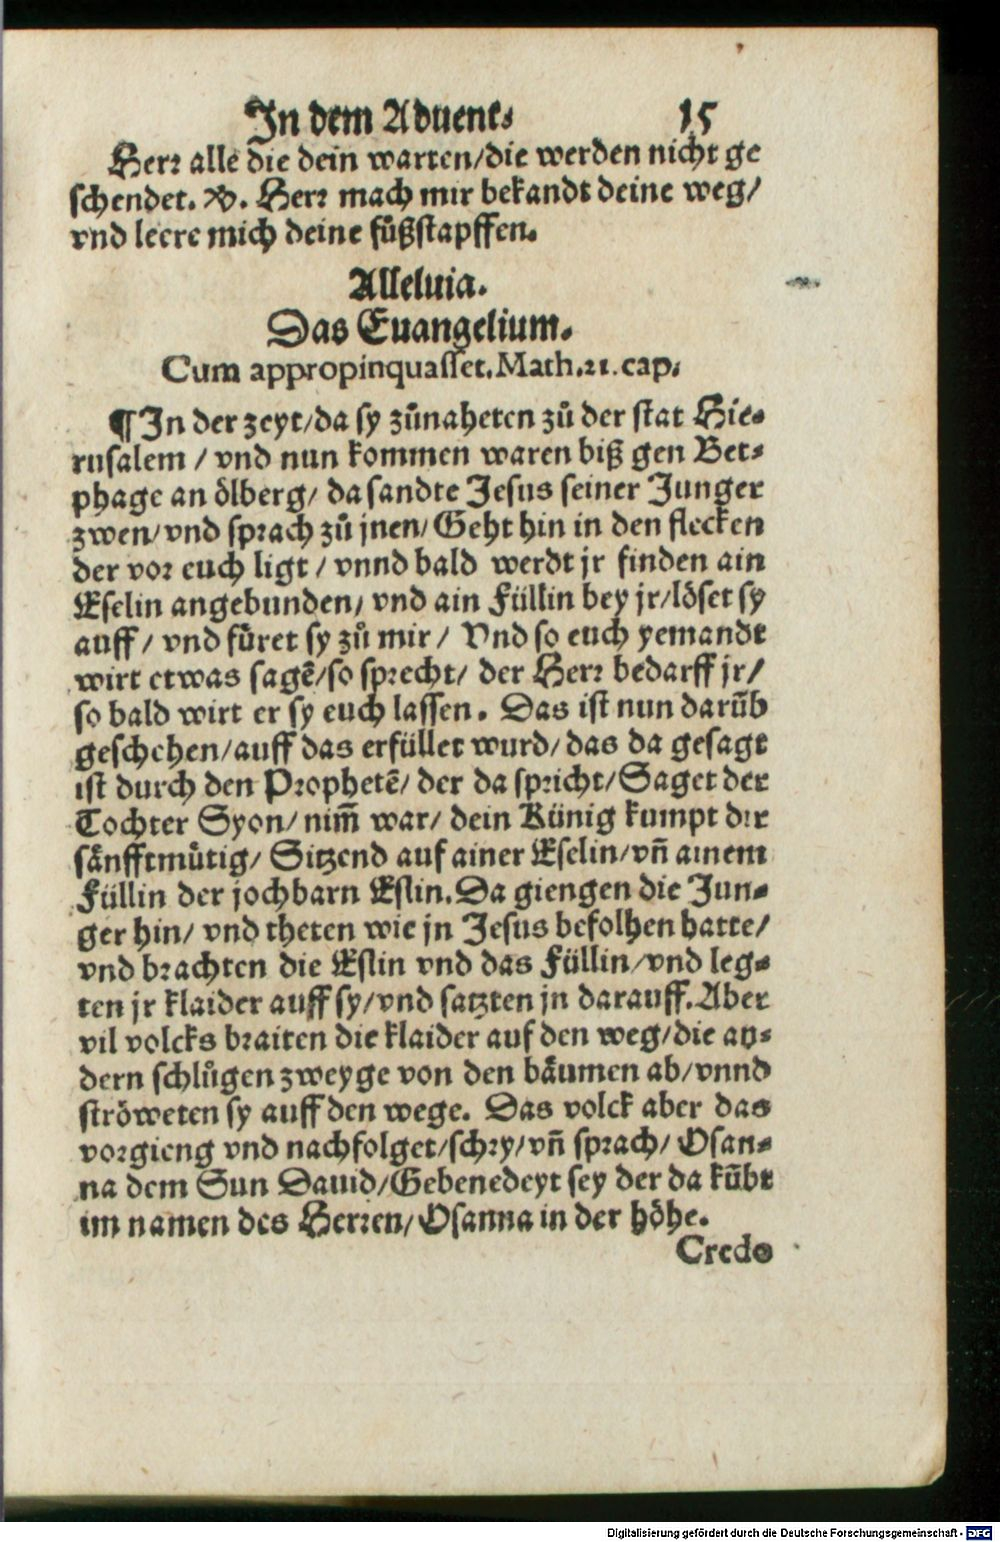 In dem Aduent. 15
Herr alle die dein warten/die werden nicht ge
schendet. V. Herr mach mir bekandt deine weg/
vnd leere mich deine fůßstapffen.
Alleluia.
Das Euangelium.
Cum appropinquasset. Math. 21. cap.
¶ In der zeyt/da sy zůnaheten zů der stat Hie⸗
rusalem / vnd nun kommen waren biß gen Bet⸗
phage an ölberg/ da sandte Jesus seiner Junger
zwen/vnd sprach zů jnen/Geht hin in den flecken
der vor euch ligt / vnnd bald werdt jr finden ain
Eselin angebunden/ vnd ain Füllin bey jr/löset sy
auff / vnd fůret sy zů mir / Vnd so euch yemandt
wirt etwas sagẽ/so sprecht/ der Herr bedarff jr/
so bald wirt er sy euch lassen. Das ist nun darũb
geschehen/auff das erfüllet wurd/das da gesagt
ist durch den Prophetẽ/ der da spricht/Saget der
Tochter Syon/ nim̃ war/ dein Künig kumpt dir
sänfftmůtig/ Sitzend auf ainer Eselin/vñ ainem
Füllin der jochbarn Eslin. Da giengen die Jun⸗
ger hin/ vnd theten wie jn Jesus befolhen hatte/
vnd brachten die Eslin vnd das Füllin/vnd leg⸗
ten jr klaider auff sy/vnd satzten jn darauff. Aber
vil volcks braiten die klaider auf den weg/die an⸗
dern schlůgen zweyge von den bäumen ab/vnnd
ströweten sy auff den wege. Das volck aber das
vorgieng vnd nachfolget/schry/vñ sprach/ Osan⸗
na dem Sun Dauid/Gebenedeyt sey der da kũbt
im namen des Herren/Osanna in der höhe.
Credo
Digitalisierung gefördert durch die Deutsche Forschungsgemeinschaft - DFG